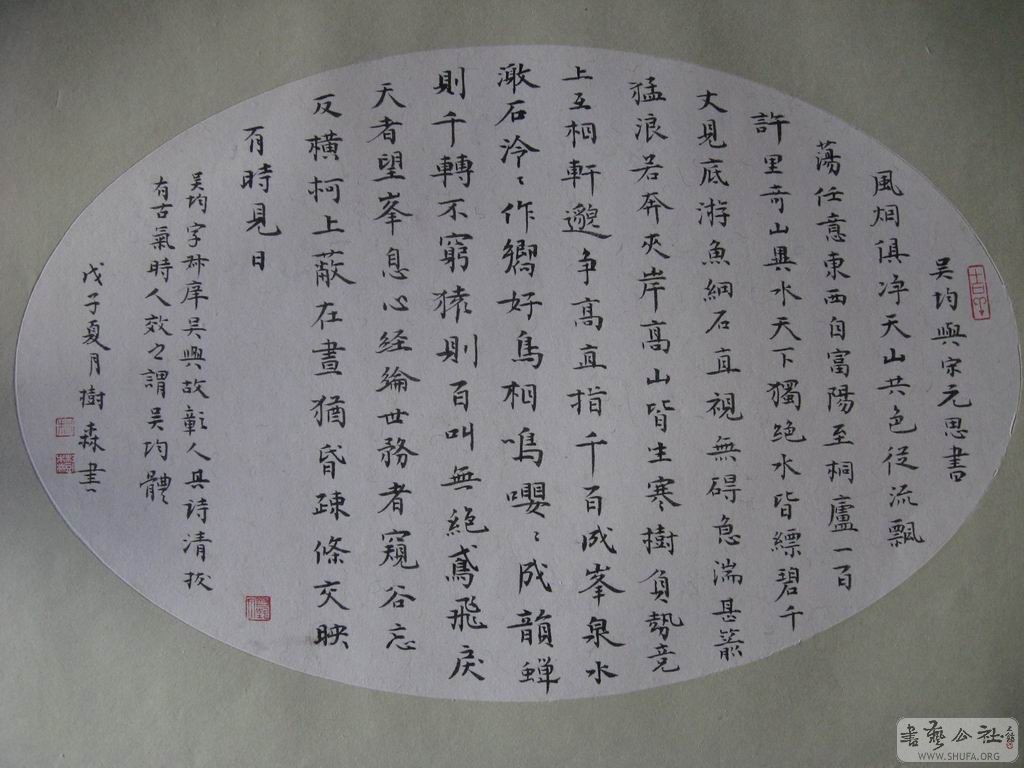 吴均與宋元思書
風烟俱净天山共色從流飄
蕩任意東西自富陽至桐廬一百
許里奇山異水天下獨绝水皆縹碧千
丈見底游魚細石直視無碍急湍甚箭
猛浪若奔夾岸高山皆生寒樹負勢竞
上互相軒邈争高直指千百成峯泉水
激石泠〻作嚮好鳥相鳴嚶〻成韻蝉
則千轉不窮猿則百叫無絕鳶飛戾
天者望峯息心经綸世務者窺谷忘
反横柯上蔽在晝猶昏疎條交映
有時見日
吴均字叔庠吴興故鄣人其詩清拔
有古氣時人效之謂吴均體
戊子夏月樹森書
書藝公社
WWW.SHUFA.ORG